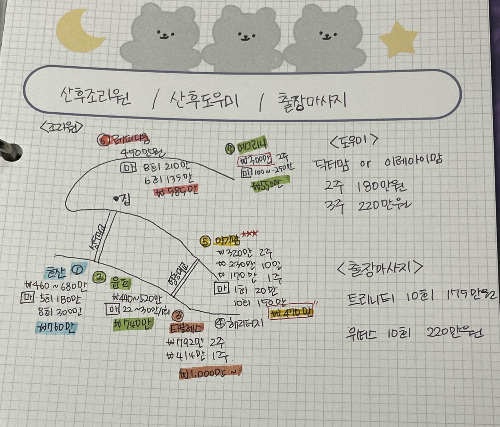 산후조리원 / 산후도우미 / 출장마사지
<조리원>
⑥ 레피리움
450만원
마 8회 210만
6회 135만
₩585만
2주
마 100~250만
₩550만
집
<도우미>
닥터맘 or 이레아이맘
2주 180만원
3주 220만원
⑤ 아기꿈 ***
₩320만 2주
₩230만 10일
₩170만 1주
마 1회 20만
10회 150만
₩470만
①
₩460~680만
마 5회 180만
8회 300만
₩760만
②
₩440~520만
마 22~30만/회
₩740만
③
₩792만 2주
₩414만 1주
₩1,000만~
④ 헤리티지
<출장마사지>
트리니티 10회 179만원
위더스 10회 220만원